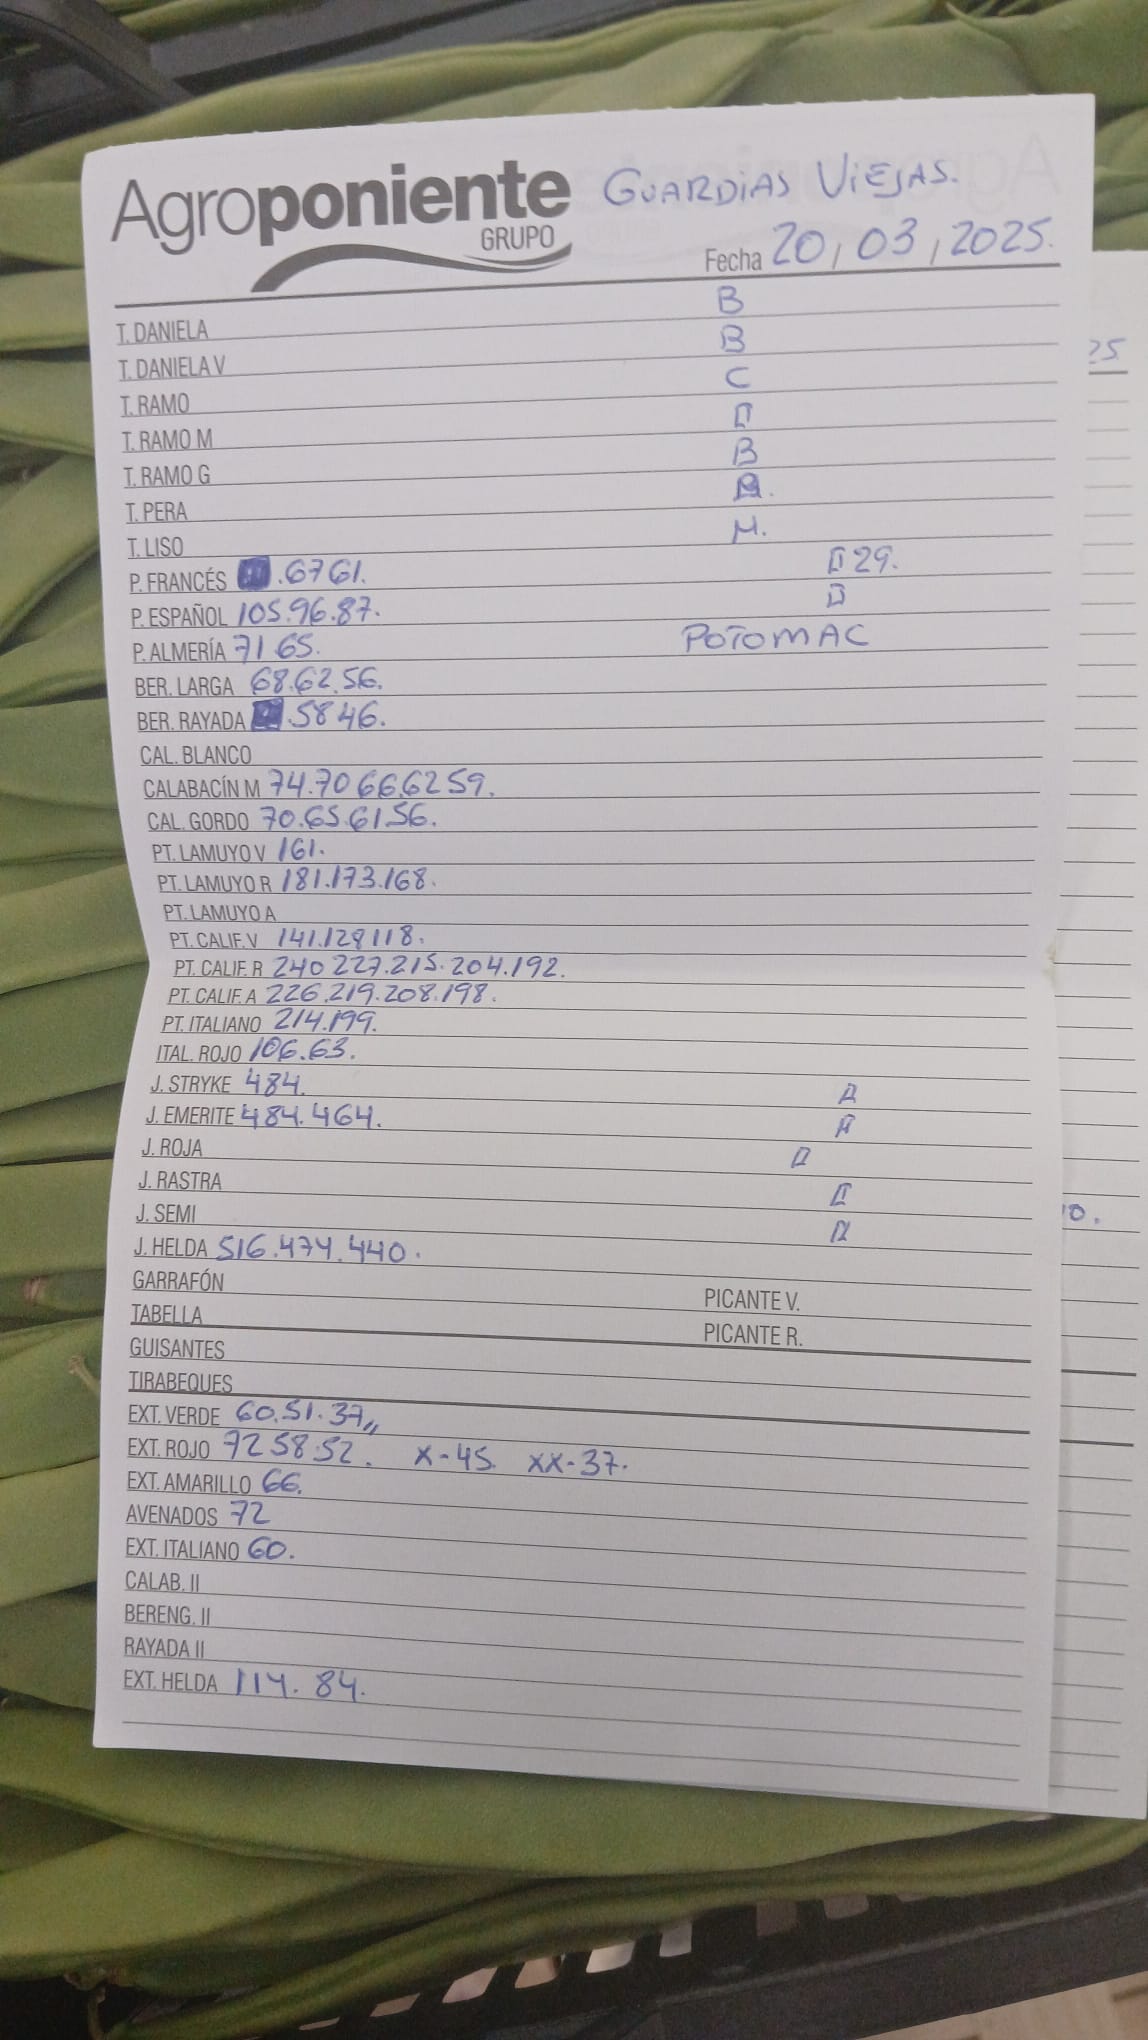 Agroponiente GUARDIAS VIEJAS.
GRUPO
Fecha 20/03/2025.
T. DANIELA B
T. DANIELA V B
T. RAMO C
T. RAMO M
T. RAMO G B
T. PERA
T. LISO M.
P. FRANCÉS .6761. 29.
P. ESPAÑOL 105.96.87.
P. ALMERÍA 71 65. POTOMAC
BER. LARGA 68.62.56.
BER. RAYADA .58 46.
CAL. BLANCO
CALABACÍN M 74.70 66.62 59.
CAL. GORDO 70.65.61.56.
PT. LAMUYO V 161.
PT. LAMUYO R 181.173.168.
PT. LAMUYO A
PT. CALIF. V 141.128 118.
PT. CALIF. R 240 227.215.204.192.
PT. CALIF. A 226.219.208.198.
PT. ITALIANO 214.199.
ITAL. ROJO 106.63.
J. STRYKE 484.
J. EMERITE 484.464.
J. ROJA
J. RASTRA
J. SEMI
J. HELDA 516.474.440.
GARRAFÓN PICANTE V.
TABELLA PICANTE R.
GUISANTES
TIRABEQUES
EXT. VERDE 60.51.37,,
EXT. ROJO 72 58.52. X-45. XX-37.
EXT. AMARILLO 66.
AVENADOS 72
EXT. ITALIANO 60.
CALAB. II
BERENG. II
RAYADA II
EXT. HELDA 114. 84.